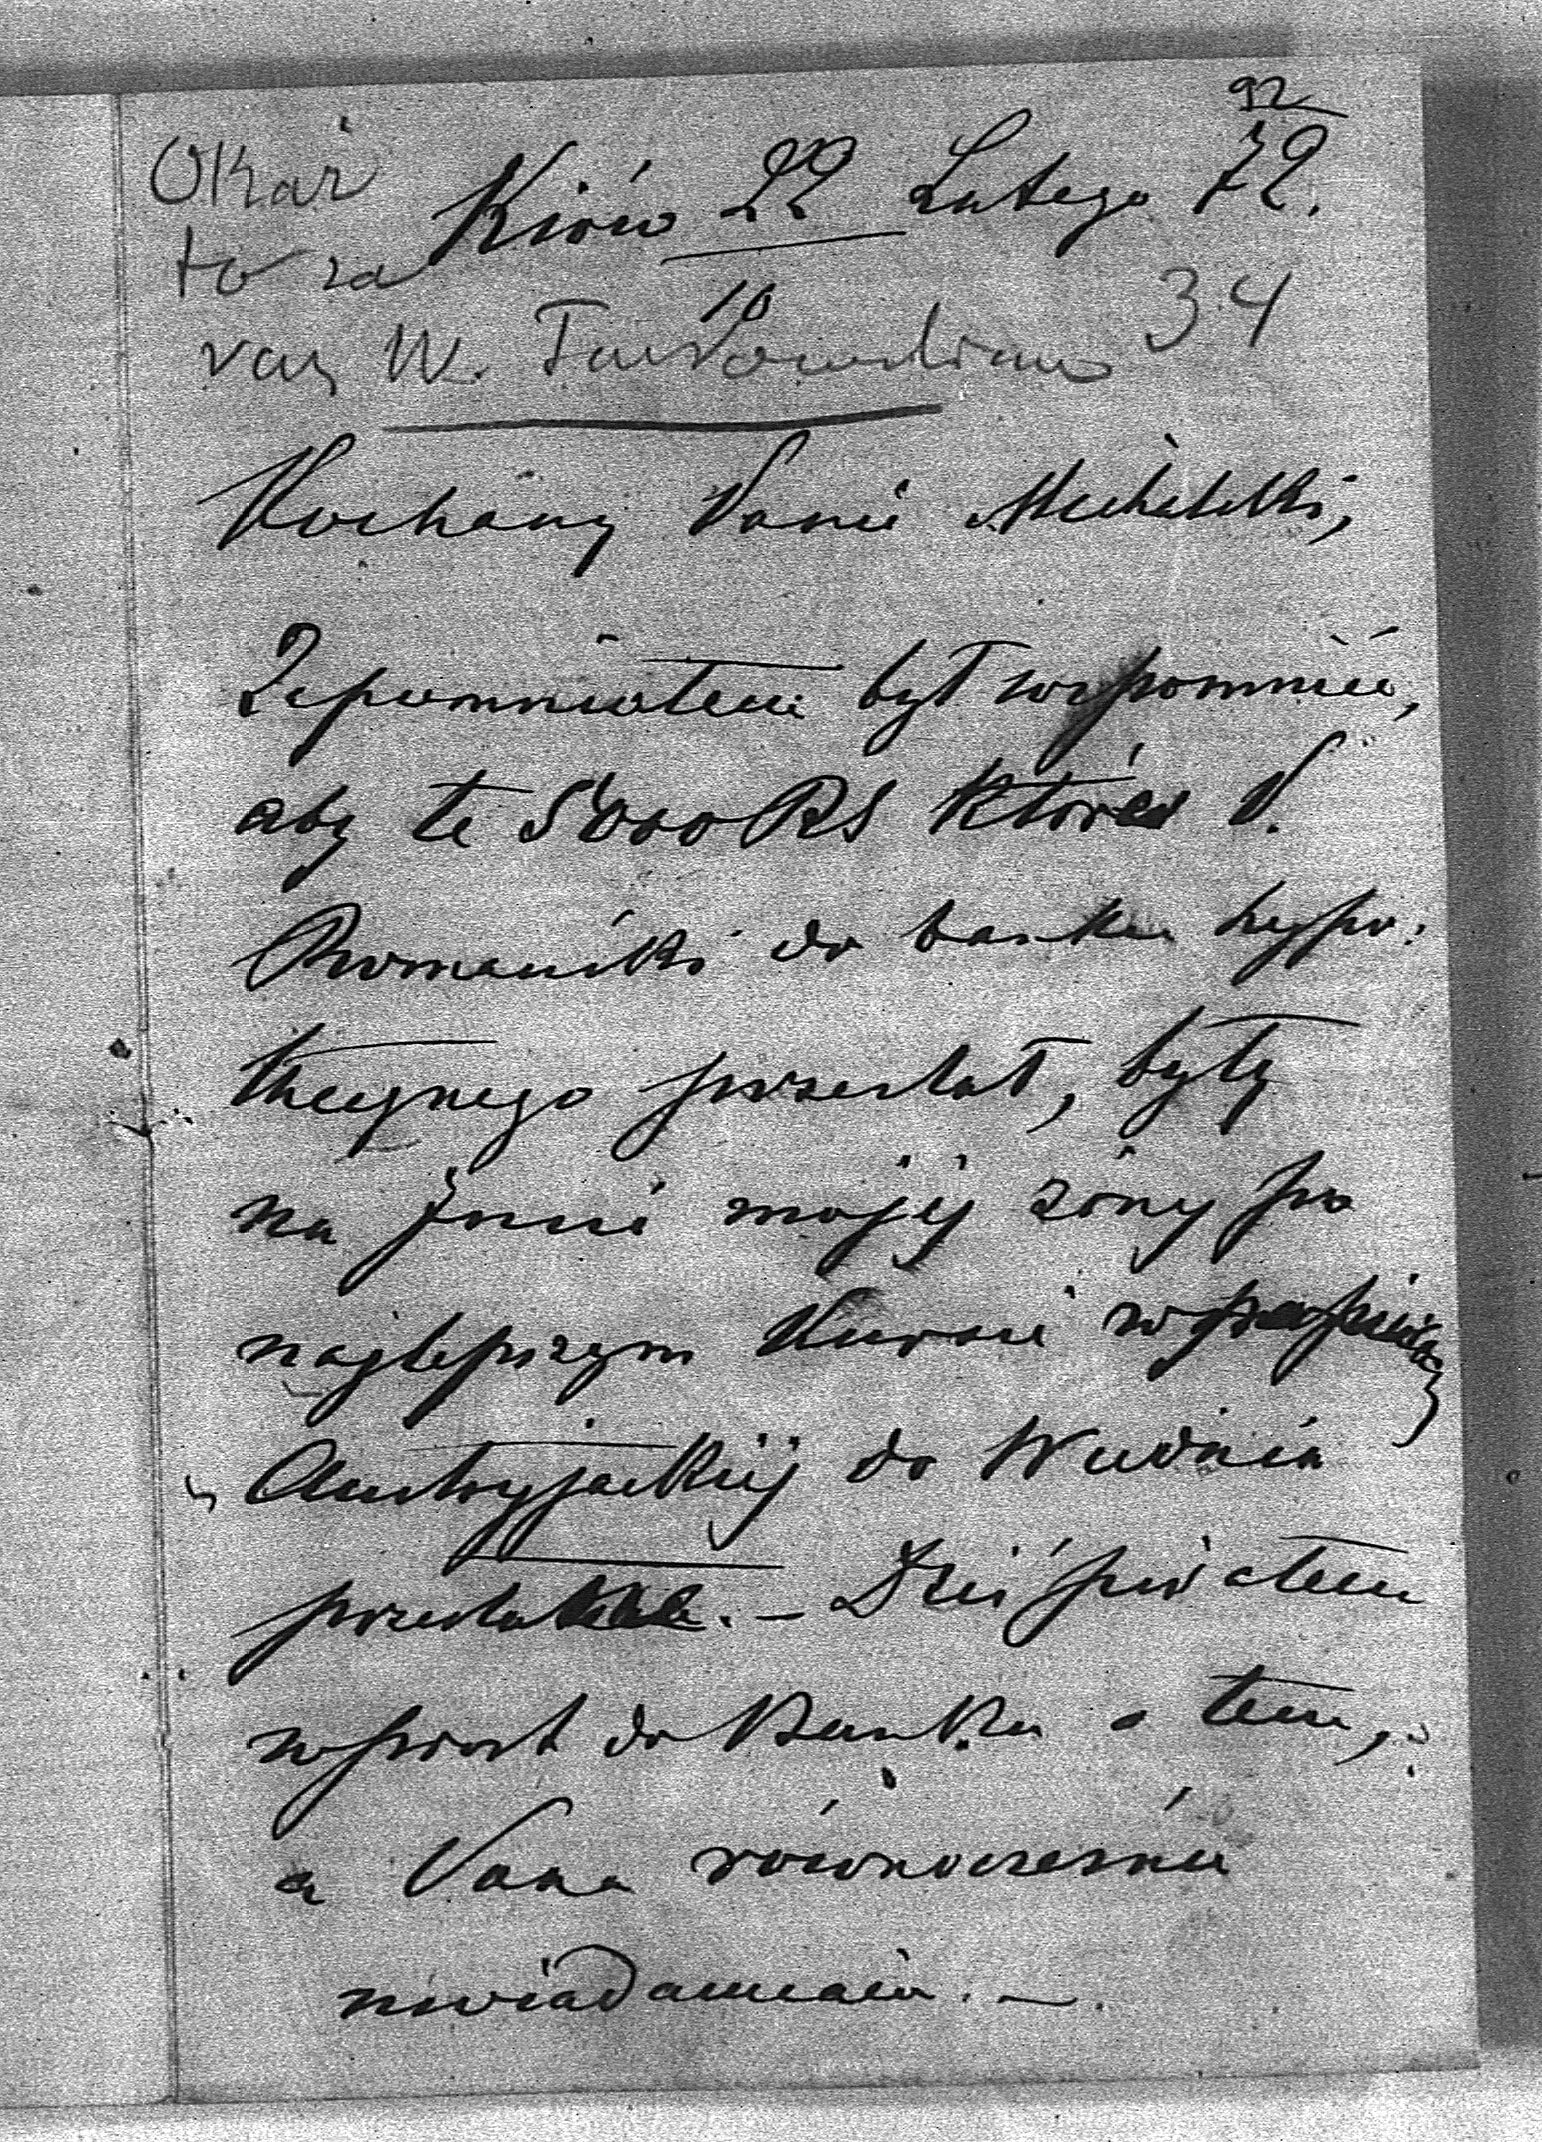 92
Okaż
Kiów 22 Lutego 72.
to za
10
34
raz W.
Kochany Panie Michalski,
Zapomniałem był wspomnieć,
aby te 5000 RS które P.
Romański do banku hypo:
tecznego przesłał, były
na Imie mojej żony po
najlepszym Kursie w papierach
Austryjackiej do Wiednia
przesłane. – Dziś pisałem
wprost do Banku o tem,
a Pana równocześnie
uwiadamiam. –.